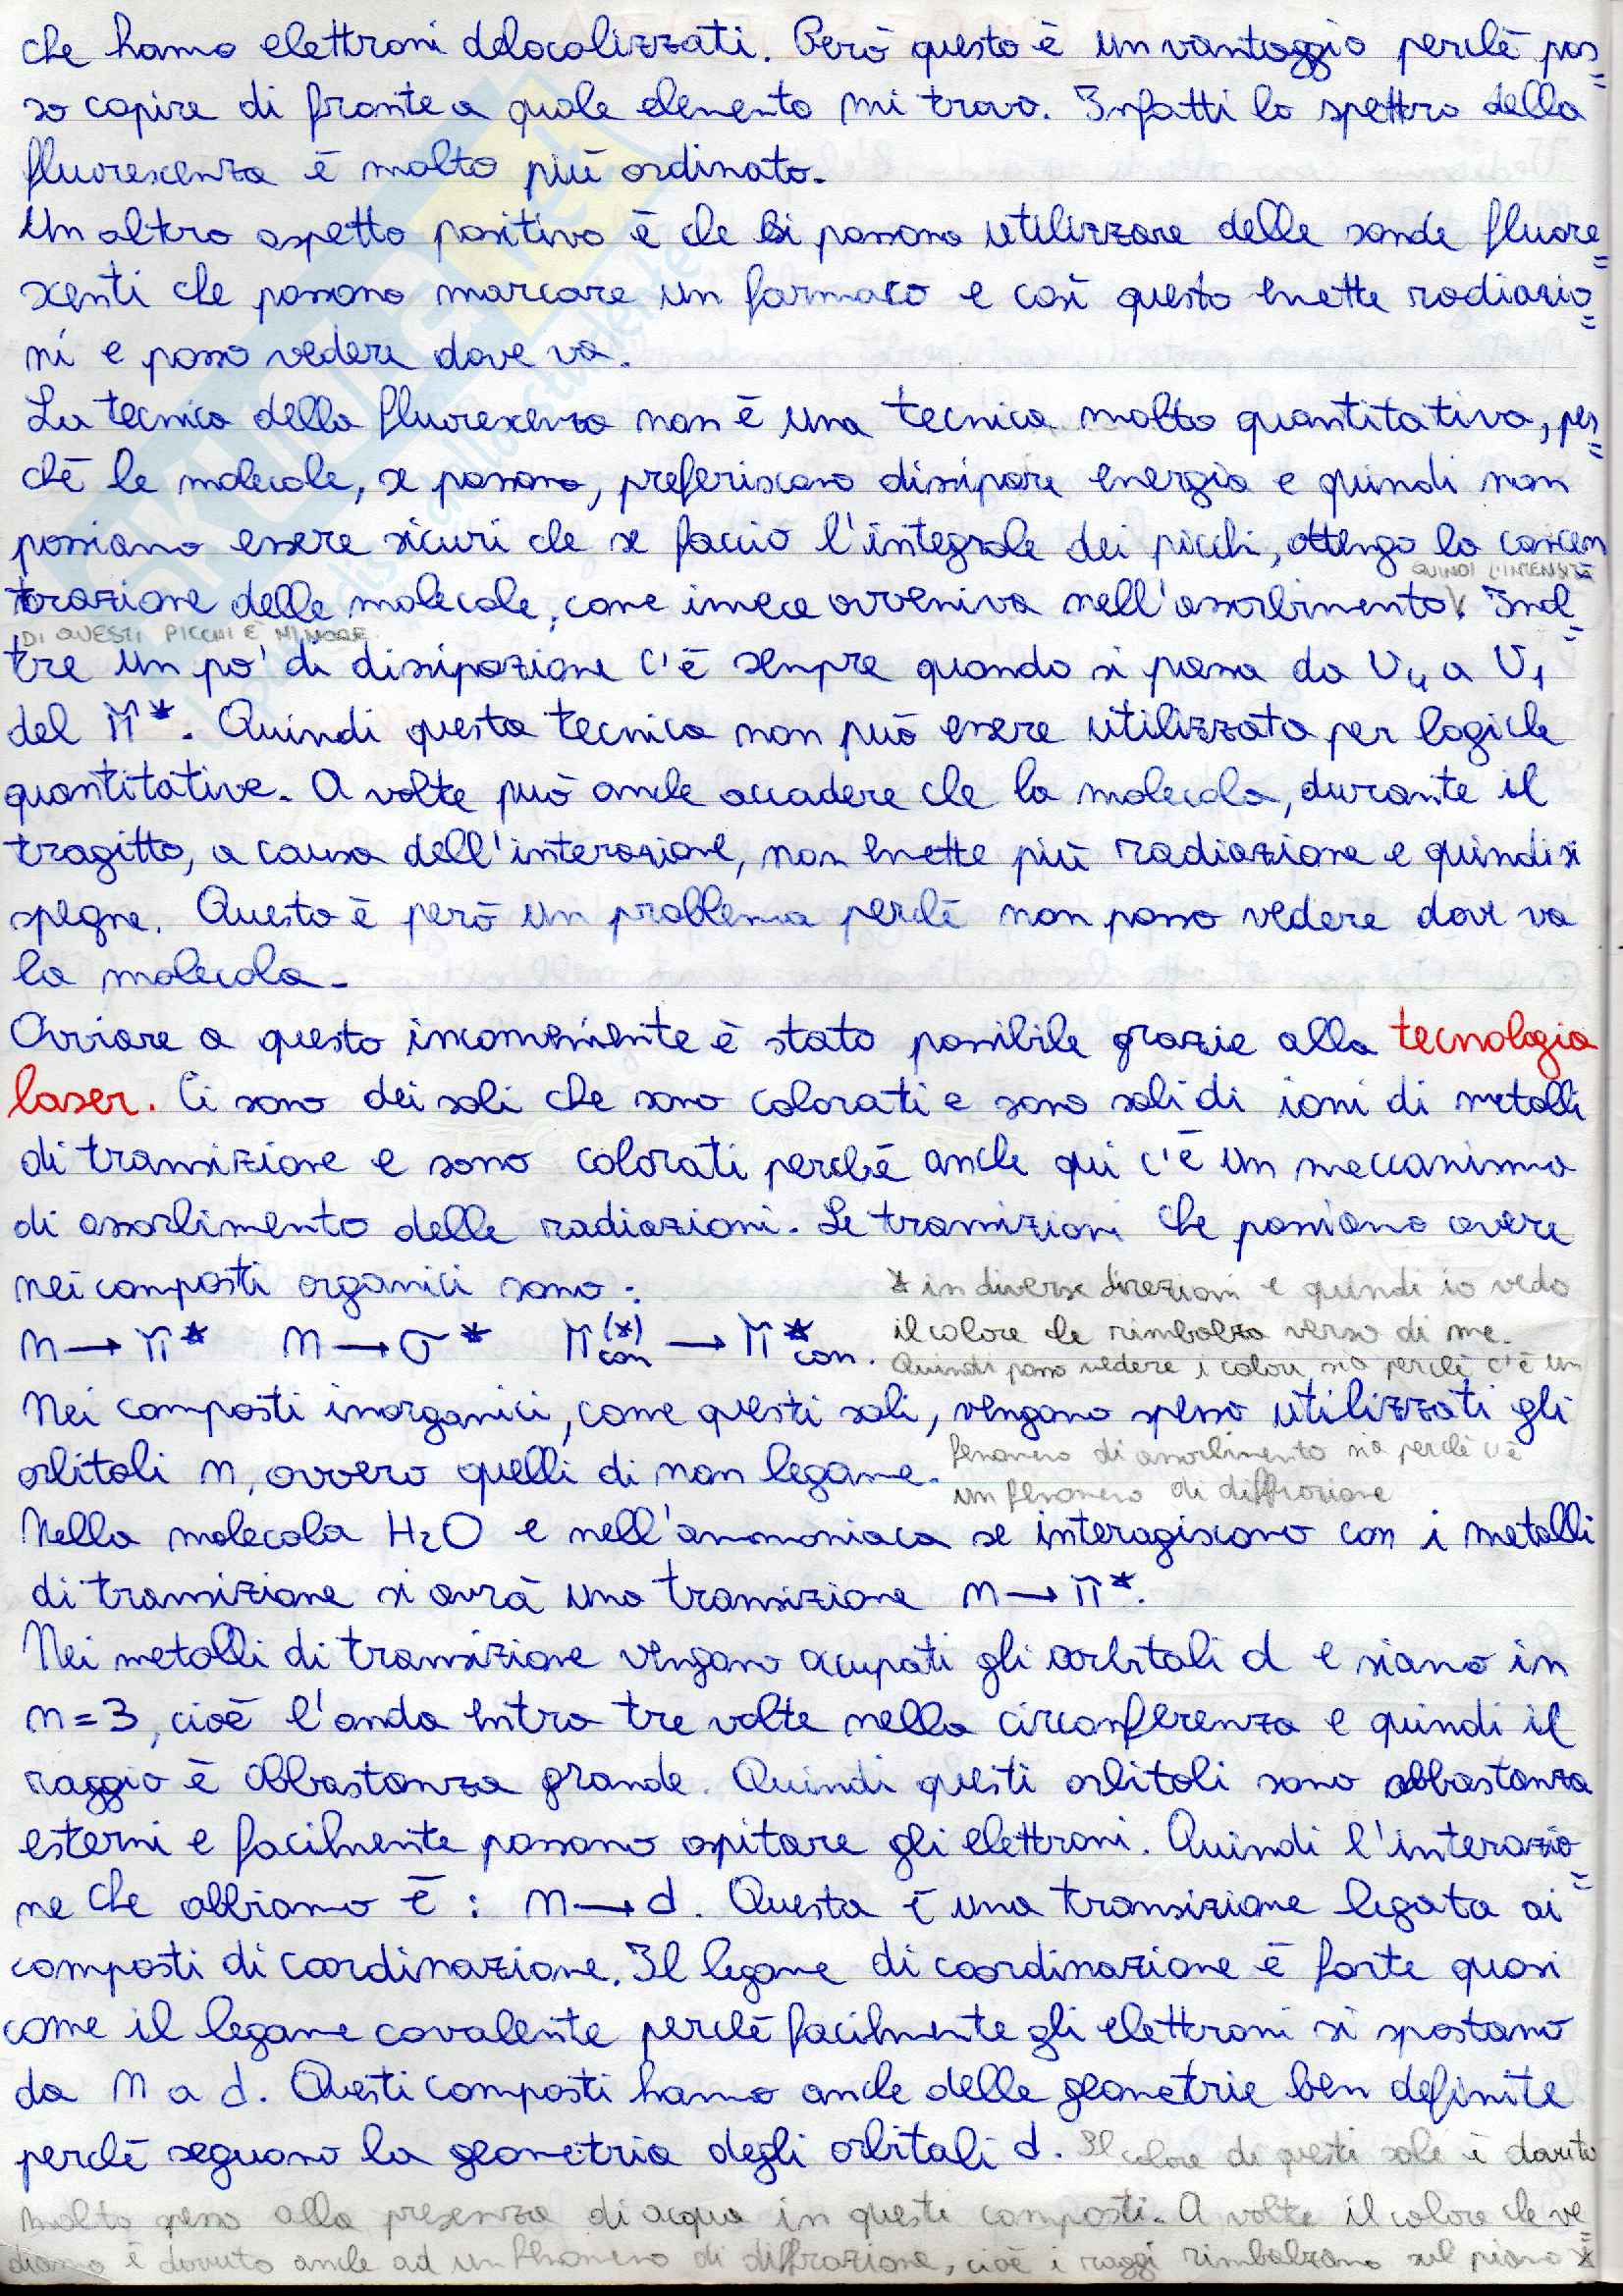 che hanno elettroni delocalizzati. Però questo è un vantaggio perchè pos=
so capire di fronte a quale elemento mi trovo. Infatti lo spettro della
fluorescenza è molto più ordinato.
Un altro aspetto positivo è che si possono utilizzare delle sonde fluore=
scenti che possono marcare un farmaco e così questo emette radiazio=
ni e posso vedere dove va.
La tecnica della fluorescenza non è una tecnica molto quantitativa, per=
chè le molecole, se possono, preferiscono dissipare energia e quindi non
possiamo essere sicuri che se faccio l'integrale dei picchi, ottengo la concen=
QUINDI L'INTENSITÀ
trazione delle molecole, come invece avveniva nell'assorbimento. Inol=
DI QUESTI PICCHI È MINORE.
tre un po' di dissipazione c'è sempre quando si passa da V4 a V1
del π*. Quindi questa tecnica non può essere utilizzata per logiche
quantitative. A volte può anche accadere che la molecola, durante il
tragitto, a causa dell'interazione, non emette più radiazione e quindi si
spegne. Questo è però un problema perchè non posso vedere dove va
la molecola.
Ovviare a questo inconveniente è stato possibile grazie alla tecnologia
laser. Ci sono dei sali che sono colorati e sono sali di ioni di metalli
di transizione e sono colorati perchè anche qui c'è un meccanismo
di assorbimento delle radiazioni. Le transizioni che possiamo avere
nei composti organici sono:
* in diverse direzioni e quindi io vedo
n → π* n → σ* π(*)con → π*con.
il colore che rimbalza verso di me.
Quindi posso vedere i colori sia perchè c'è un
Nei composti inorganici, come questi sali, vengono spesso utilizzati gli
fenomeno di assorbimento sia perchè c'è
orbitali n, ovvero quelli di non legame.
un fenomeno di diffrazione
Nella molecola H2O e nell'ammoniaca se interagiscono con i metalli
di transizione si avrà una transizione n → π*.
Nei metalli di transizione vengono occupati gli orbitali d e siamo in
n=3, cioè l'onda entra tre volte nella circonferenza e quindi il
raggio è abbastanza grande. Quindi questi orbitali sono abbastanza
esterni e facilmente possono ospitare gli elettroni. Quindi l'interazio=
ne che abbiamo è: n → d. Questa è una transizione legata ai
composti di coordinazione. Il legame di coordinazione è forte quasi
come il legame covalente perchè facilmente gli elettroni si spostano
da n a d. Questi composti hanno anche delle geometrie ben definite
perchè seguono la geometria degli orbitali d. Il colore di questi sali è dovuto
molto spesso alla presenza di acqua in questi composti. A volte il colore che ve=
diamo è dovuto anche ad un fenomeno di diffrazione, cioè i raggi rimbalzano sul piano *